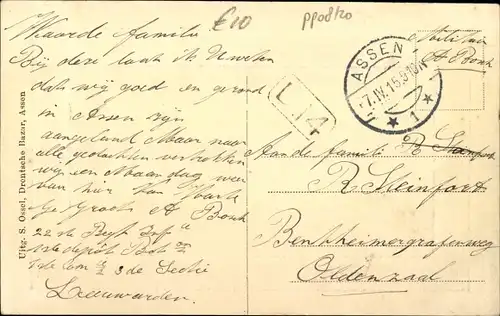 Waarde familie
Bij deze laat ik U weten
dat wij goed en gezond
in Assen zijn
aangeland Maar naar
alle gedachten vertrekken
wij Maandag weer
van hier
Gegroet A Bonk
22ste Regt Inf
1ste depot Bat
1ste Com 3de Sectie
Leeuwarden.
Uitg. S. Ossel, Drentsche Bazar, Assen
£10
L.14
ASSEN
1
Militair
A Bonk
Aan de familie
R Steinfort
Bentheimergrafenweg
Oldenzaal